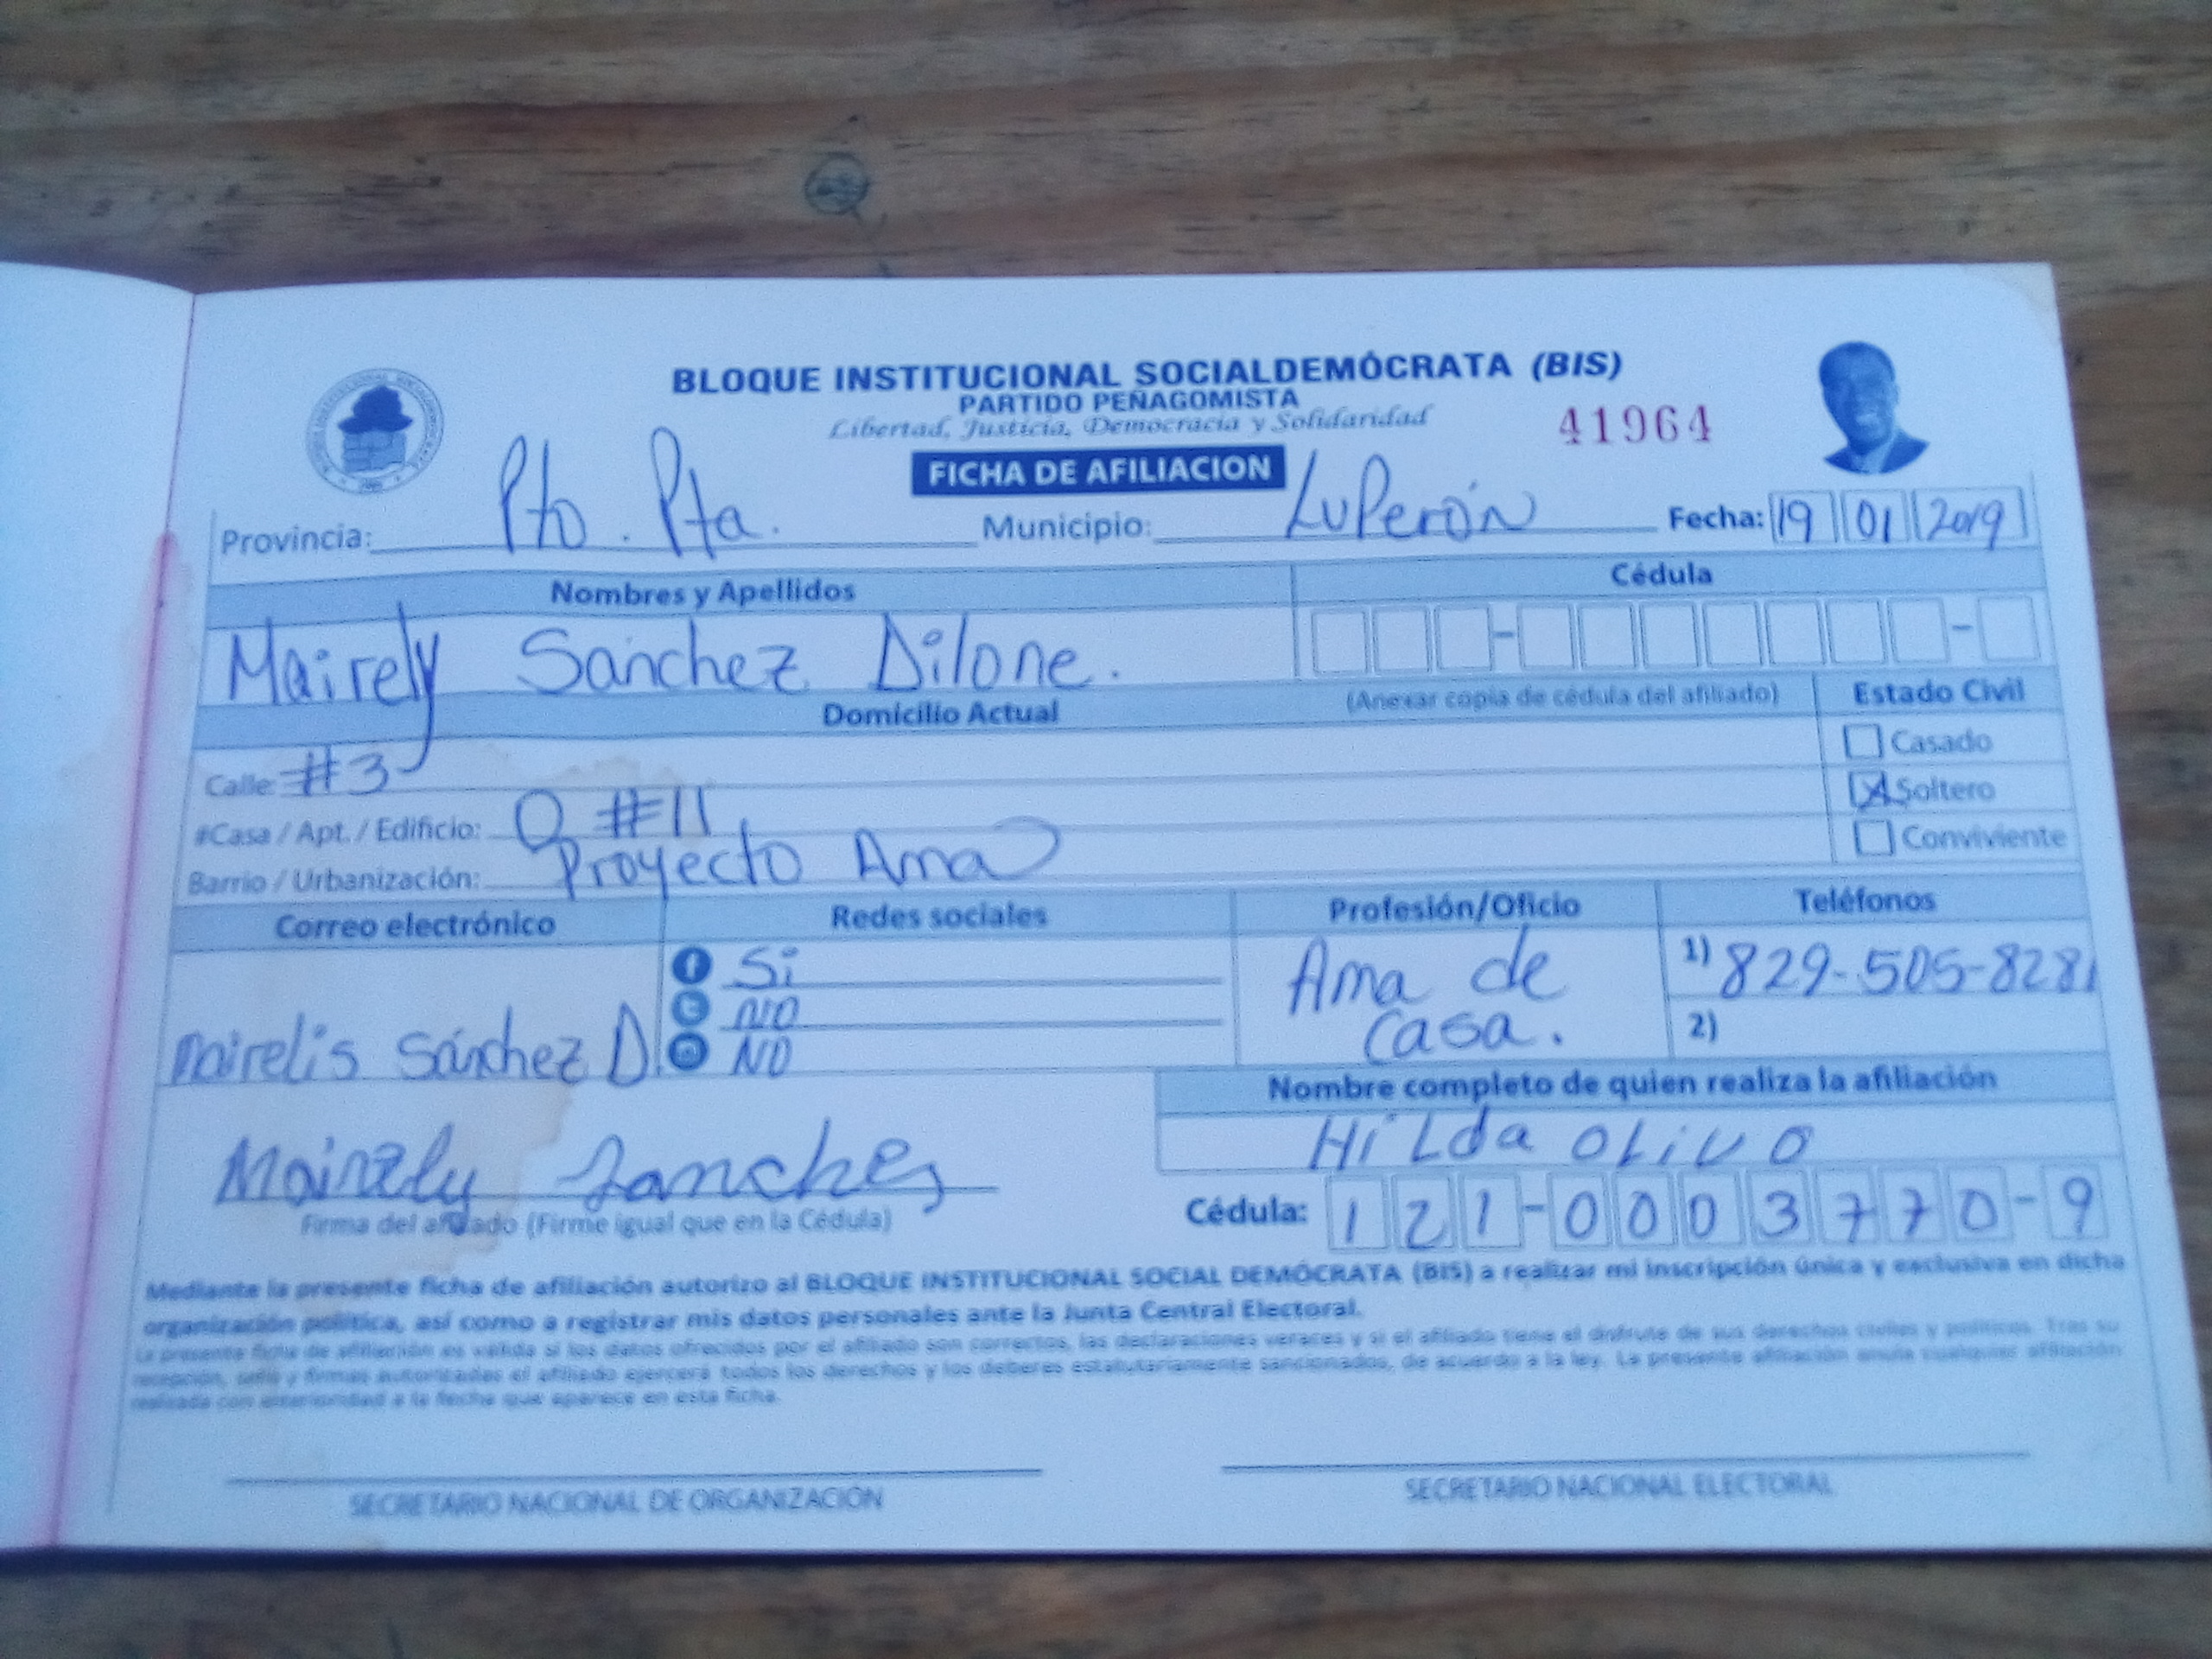 BLOQUE INSTITUCIONAL SOCIALDEMÓCRATA (BIS)
PARTIDO PEÑAGOMISTA
Libertad, Justicia, Democracia y Solidaridad
41964
FICHA DE AFILIACION
Provincia: Pto. Pta. Municipio: Luperón Fecha: 19 01 2019
Nombres y Apellidos Cédula
Mairely Sánchez Dilone.
(Anexar copia de cédula del afiliado) Estado Civil
Domicilio Actual
Casado
Calle: #3
Soltero
#Casa / Apt. / Edificio: #11
Conviviente
Barrio / Urbanización: Proyecto Ama
Correo electrónico Redes sociales Profesión/Oficio Teléfonos
Mairelis Sánchez D. Si Ama de 1) 829-505-8281
NO Casa. 2)
NO
Nombre completo de quien realiza la afiliación
HiLda oLiVo
Mairely Sanchez
Firma del afiliado (Firme igual que en la Cédula)
Cédula: 121-0003770-9
Mediante la presente ficha de afiliación autorizo al BLOQUE INSTITUCIONAL SOCIAL DEMÓCRATA (BIS) a realizar mi inscripción única y exclusiva en dicha
organización política, así como a registrar mis datos personales ante la Junta Central Electoral.
La presente ficha de afiliación es valida si los datos ofrecidos por el afiliado son correctos, las declaraciones veraces y si el afiliado tiene el disfrute de sus derechos civiles y políticos. Tras su
recepción, sello y firmas autorizadas el afiliado ejercerá todos los derechos y los deberes estatutariamente sancionados, de acuerdo a la ley. La presente afiliación anula cualquier afiliación
realizada con anterioridad a la fecha que aparece en esta ficha.
SECRETARIO NACIONAL DE ORGANIZACIÓN SECRETARIO NACIONAL ELECTORAL